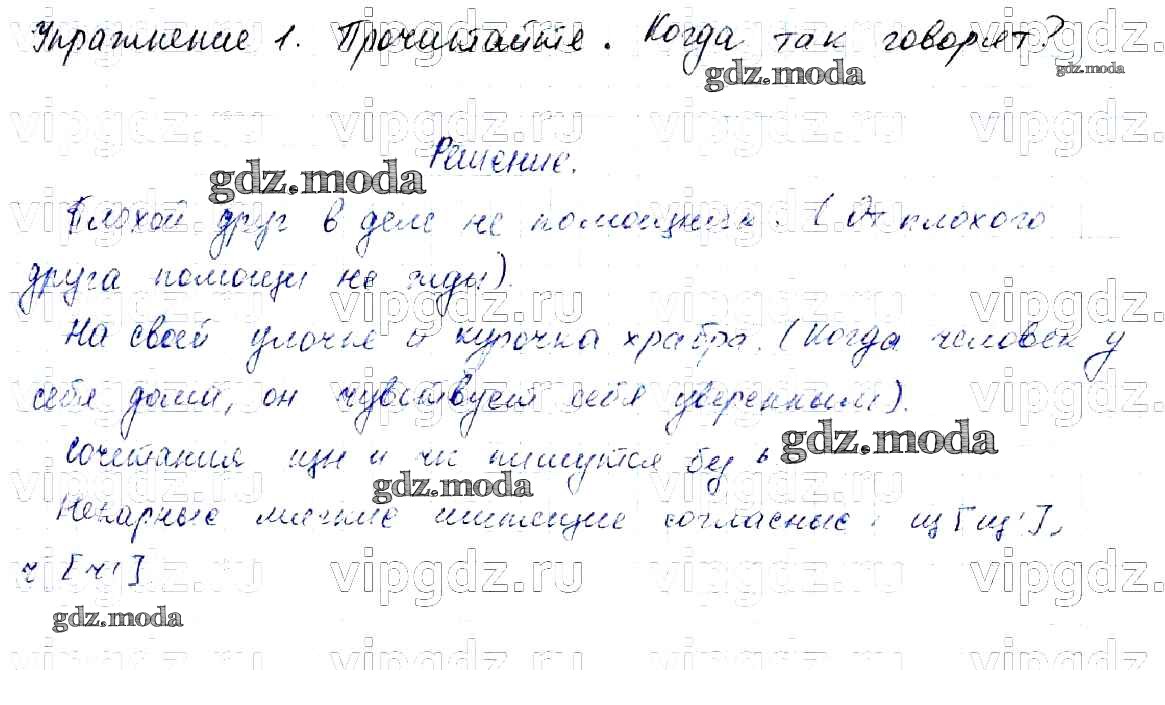 Упражнение 1. Прочитайте. Когда так говорят?
gdz.moda gdz.moda
vipgdz.ru vipgdz.ru vipgdz.ru vipgdz.
Решение.
gdz.moda
Плохой друг в деле не помощник. (От плохого
друга помощи не жди).
На своей улочке и курочка храбра. (Когда человек у
себя дома, он чувствует себя уверенным).
gdz.moda
Сочетания щн и чк пишутся без ь
gdz.moda
Непарные мягкие шипящие согласные: щ [щ'],
ч [ч']
gdz.moda